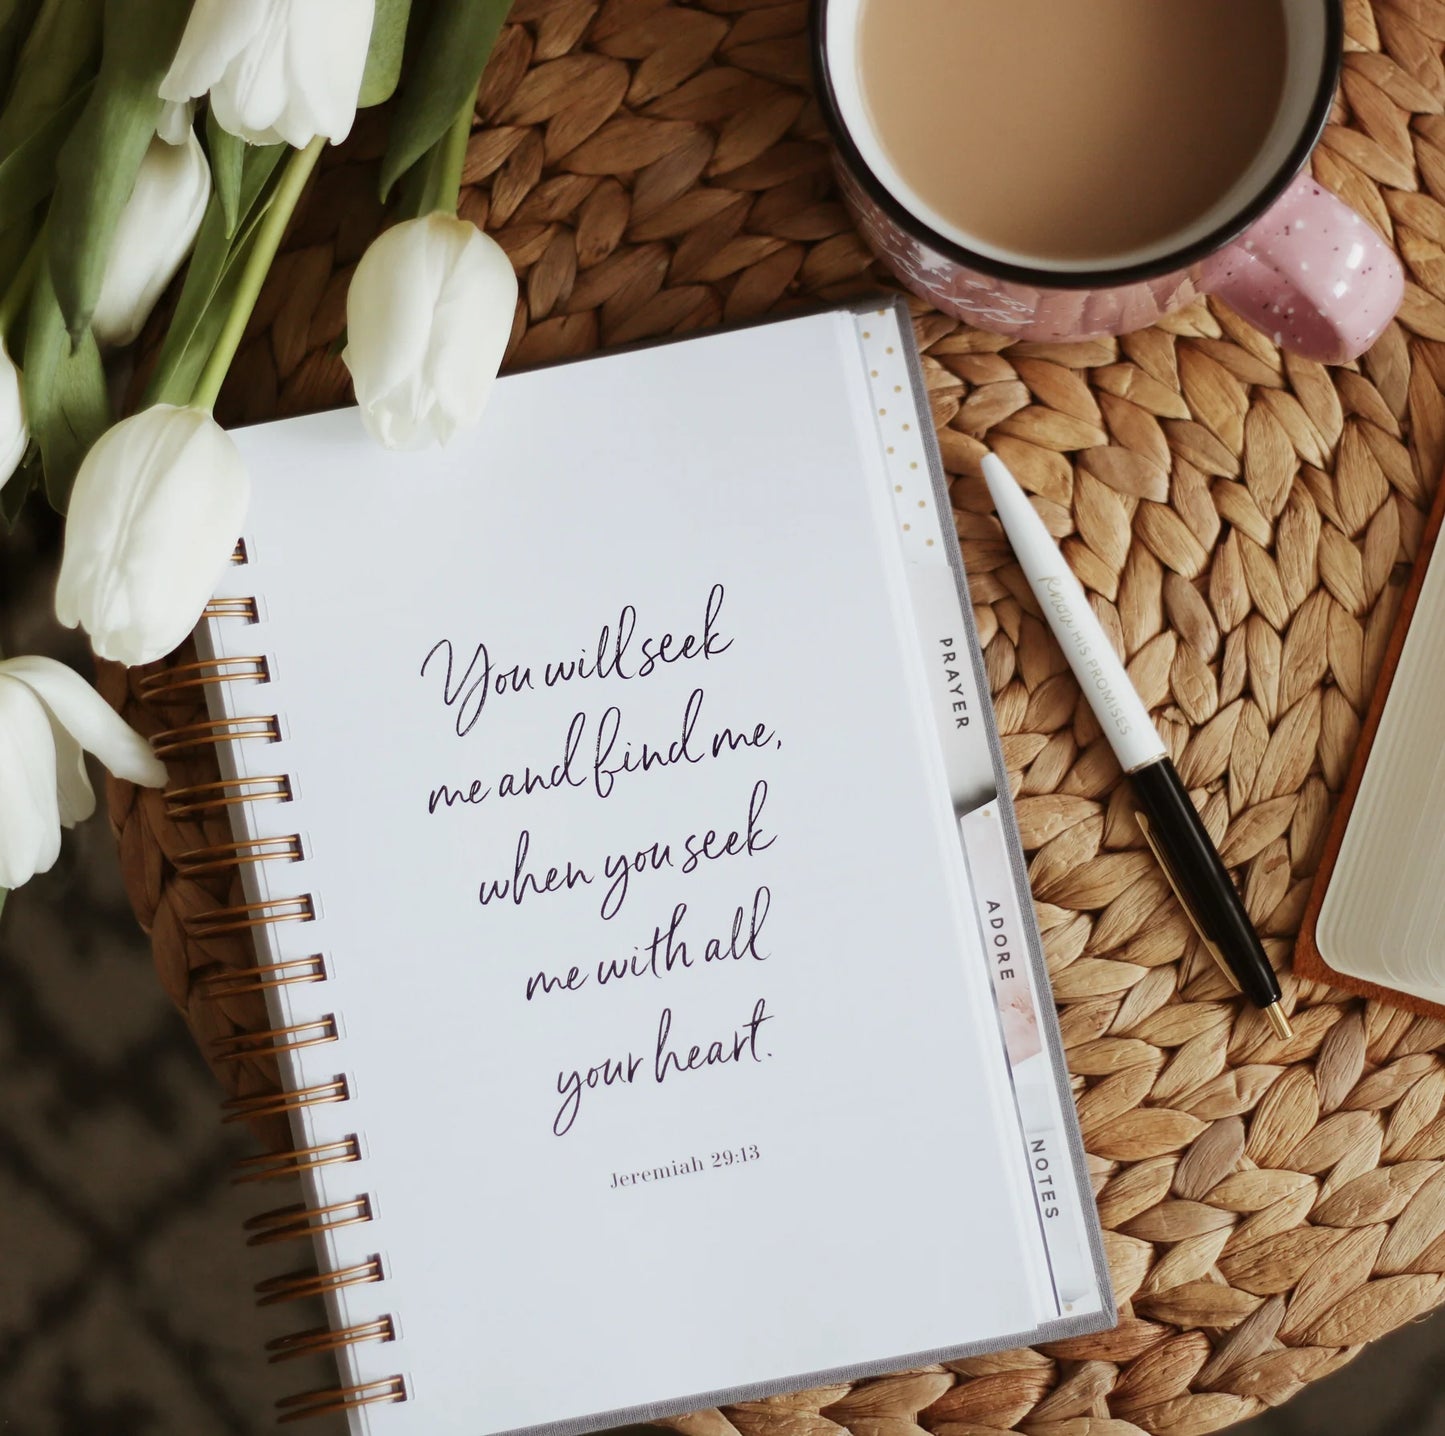 You will seek
me and find me,
when you seek
me with all
your heart.
Jeremiah 29:13
PRAYER
ADORE
NOTES
Know HIS PROMISES